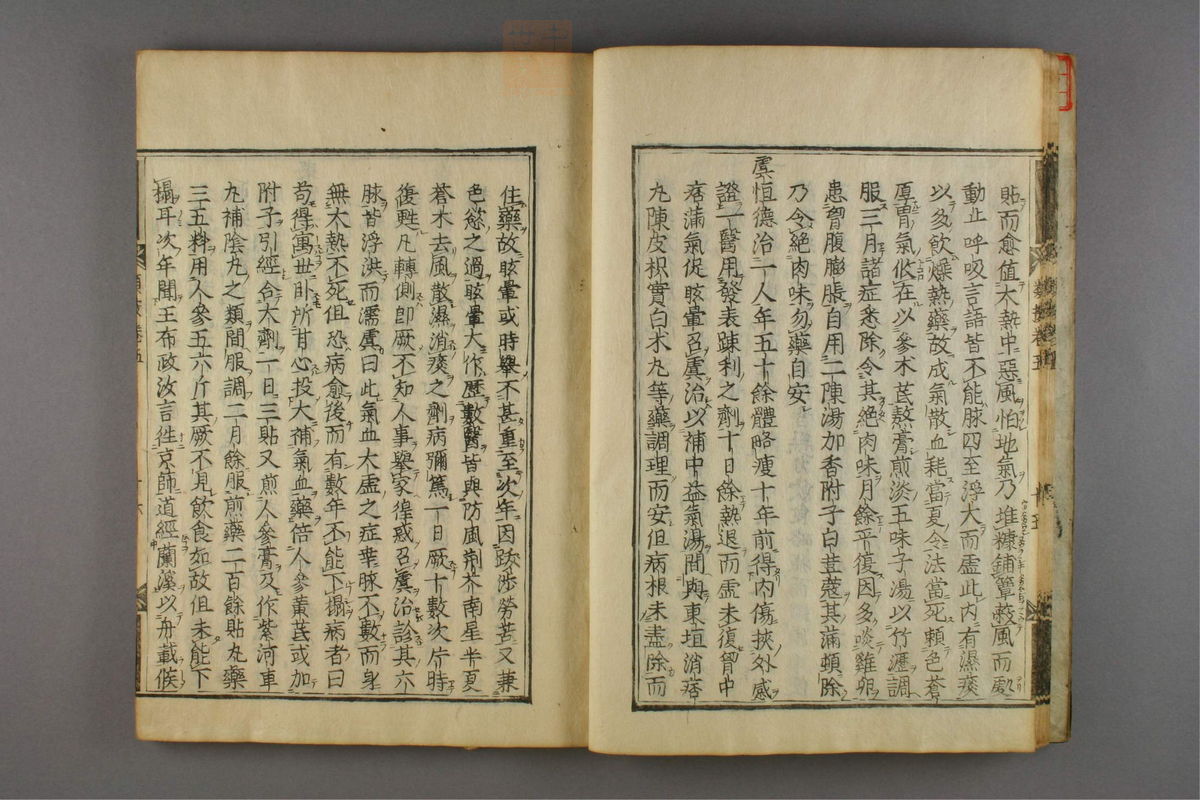 貼而愈値大熱中惡風怕地氣乃堆糠鋪簟蔽風而處
動止呼吸言語皆不能脉四至浮大而虛此內有濕痰
以多飮燥熱藥故成氣散血耗當夏令法當死頼色蒼
厚胃氣攸在以參朮芪熬膏煎淡五味子湯以竹瀝調
服三月諸症悉除令其絕肉味月餘平復因多啖雞卵
患胷腹膨脹自用二陳湯加香附子白荳蔻其滿頓除
乃令絕肉味勿藥自安
虞恒德治一人年五十餘體略瘦十年前得內傷挾外感
證一醫用發表踈利之劑十日餘熱退而虛未復胷中
痞滿氣促眩暈召虞治以補中益氣湯間與東垣消痞
丸陳皮枳實白朮丸等藥調理而安但病根未盡除而
住藥故眩暈或時舉不甚重至次年因跋涉勞苦又兼
色慾之過眩暈大作歷數醫皆與防風荊芥南星半夏
蒼朮去風散濕消痰之劑病彌篤一日厥十數次片時
復甦凡轉側卽厥不知人事舉家徨惑召虞治診其六
脉皆浮洪而濡虞曰此氣血大虛之症幸脉不數而身
無大熱不死但恐病愈後而有數年不能下榻病者曰
苟得寓世卧所甘心投大補氣血藥倍人參黃芪或加
附子引經合大劑一日三貼又煎人參膏及作紫河車
丸補陰丸之類間服調二月餘服煎藥二百餘貼丸藥
三五料用人參五六斤其厥不見飮食如故但未能下
榻耳次年聞王布政汝言徃京師道經蘭溪以舟載候